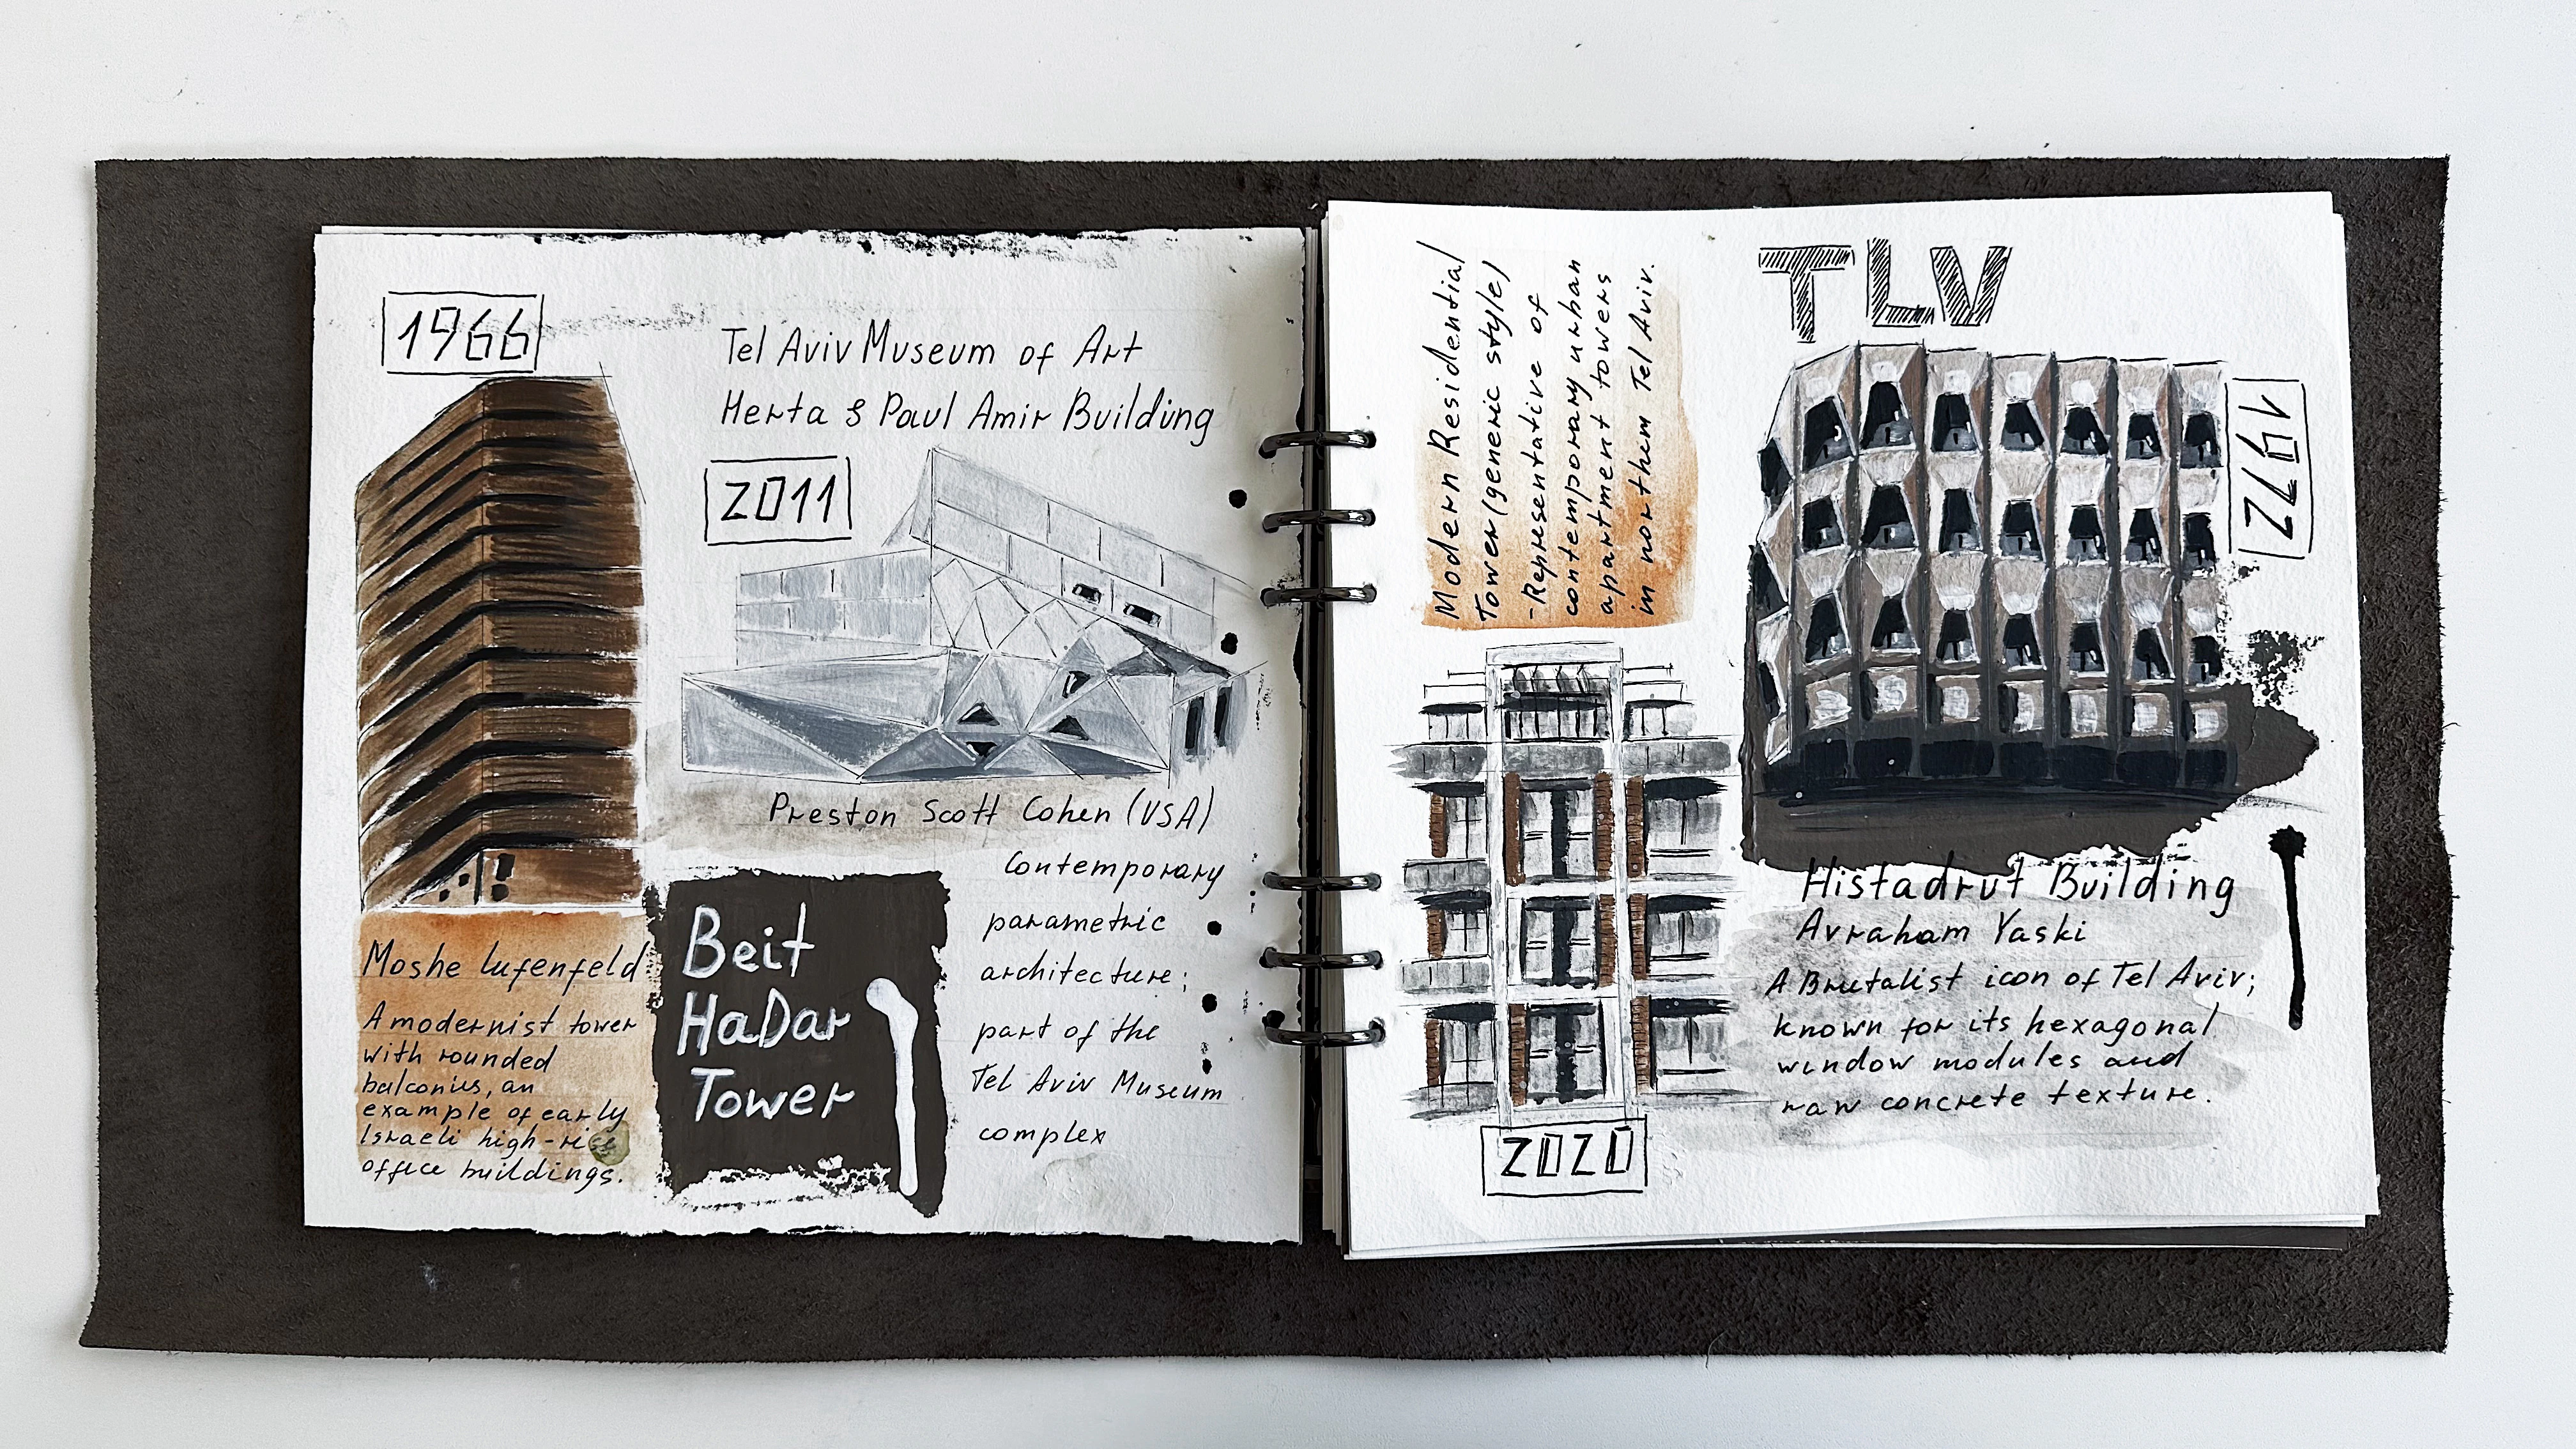 1966
Tel Aviv Museum of Art
Herta & Paul Amir Building
2011
Preston Scott Cohen (USA)
Contemporary
parametric
architecture;
part of the
Tel Aviv Museum
complex
Moshe Lufenfeld
A modernist tower
with rounded
balconies, an
example of early
Israeli high-rise
office buildings.
Beit
HaDar
Tower
Modern Residential
Tower (generic style)
-Representative of
contemporary urban
apartment towers
in northem Tel Aviv.
2020
TLV
1972
Histadrut Building
Avraham Yaski
A Brutalist icon of Tel Aviv;
known for its hexagonal
window modules and
raw concrete texture.